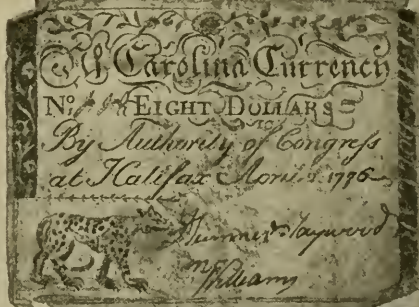 N Carolina Currency
No. EIGHT DOLLARS
By Authority of Congress
at Halifax April 2. 1776
Haywood
Williams